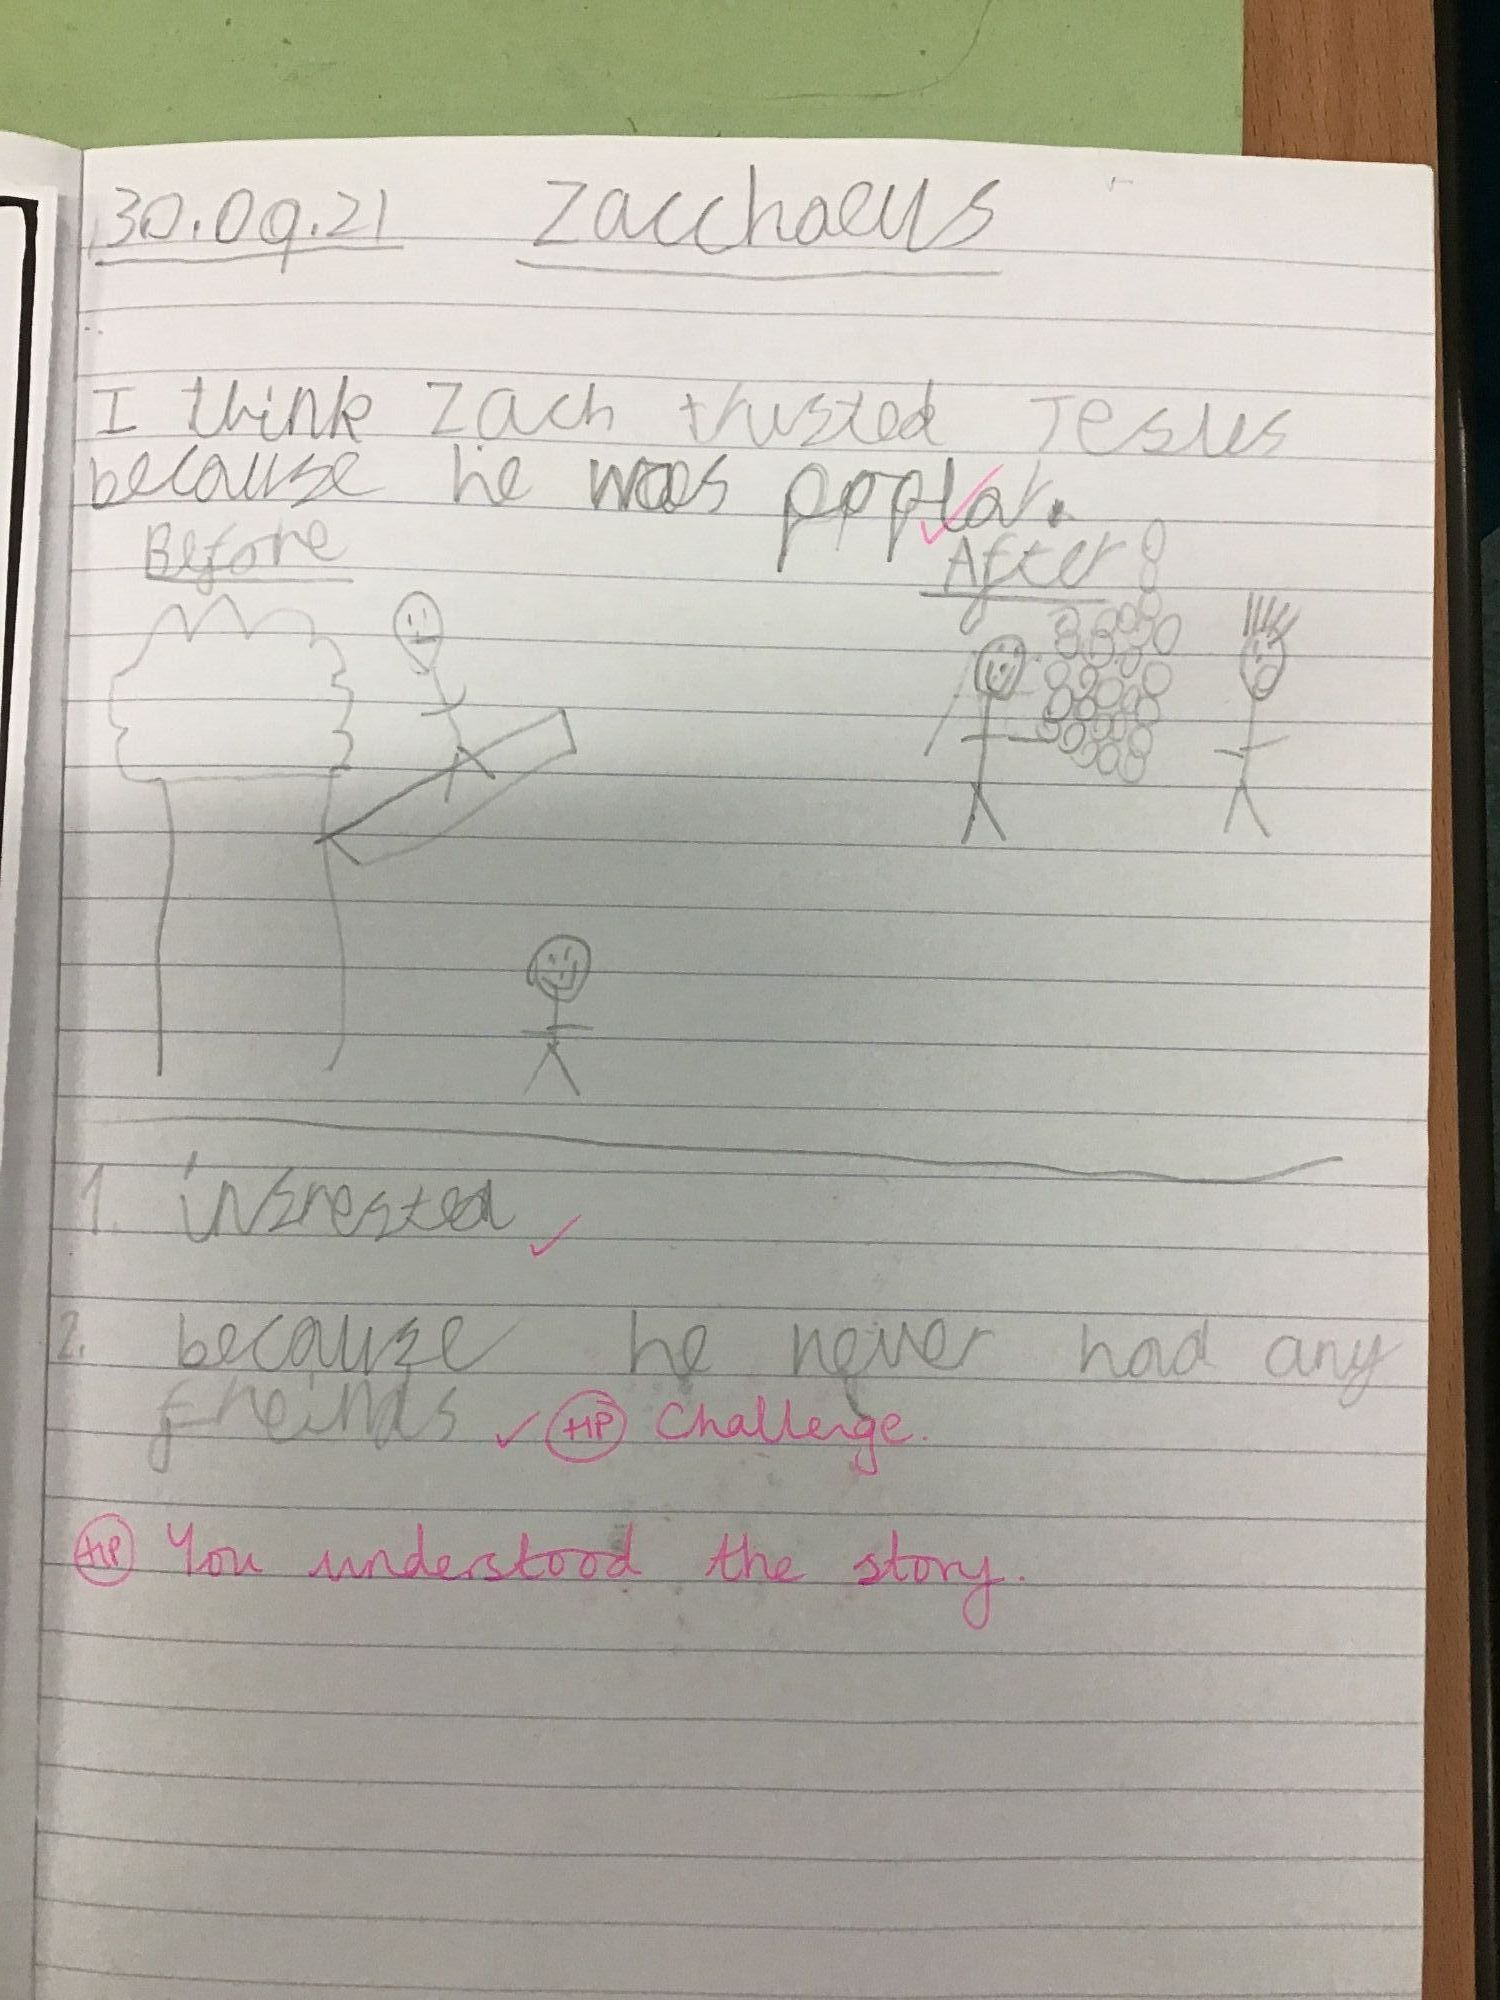 30.09.21 Zacchaeus
I think Zach trusted Jesus
because he was poplar.
Before After
1. insrested
2. because he never had any
freinds HP Challenge.
HP You understood the story.